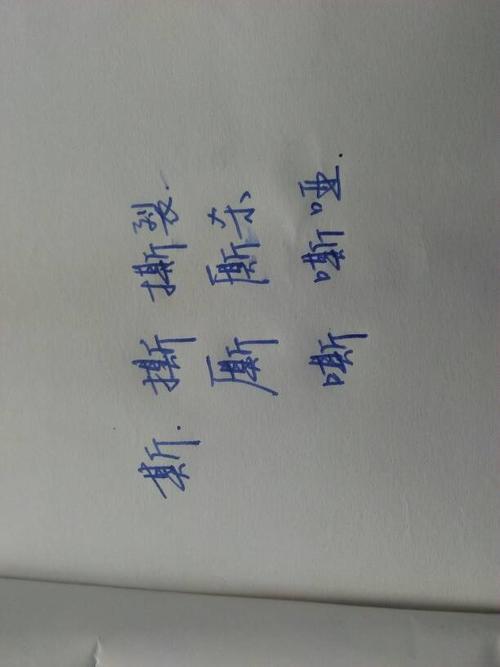 斯. 撕 撕裂.
厮 厮杀
嘶 嘶哑.